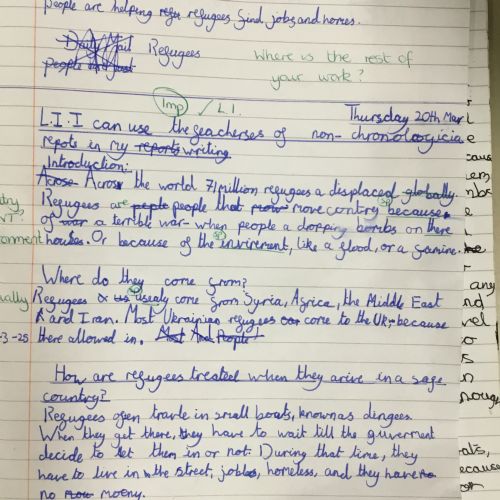 people are helping refugees find jobs and homes.
Daily Mail Refugees
people and just
Where is the rest of
your work?
Imp / L.I.
Thursday 20th Mar
L.I: I can use the geacherses of non-chronoloogicia
repots in my reports writing
Introduction:
Across Across the world 71million regugees a displaced globally.
Regugees are people that move contry because
of war a terrible war- when people a dropping bombs on there
houses. Or because of the invirement, like a flood, or a gamine.
Where do they come grom?
Regugees usealy come grom Syria, Agrica, the Middle East
and Iran. Most Ukrainian regugees come to the UK, because
there allowed in. Most And People
How are regugees treated when they arive in a sage
country?
Regugees ogen travle in small boats, known as dingees.
When they get there, they have to wait till the guverment
decide to let them in or not. During that time, they
have to live in the street, jobless, homeless, and they have
no moeny.
ntry,
onment
ually
-3-25
caus
em
any
nd
vel
o
s
n
noug
ecause
or